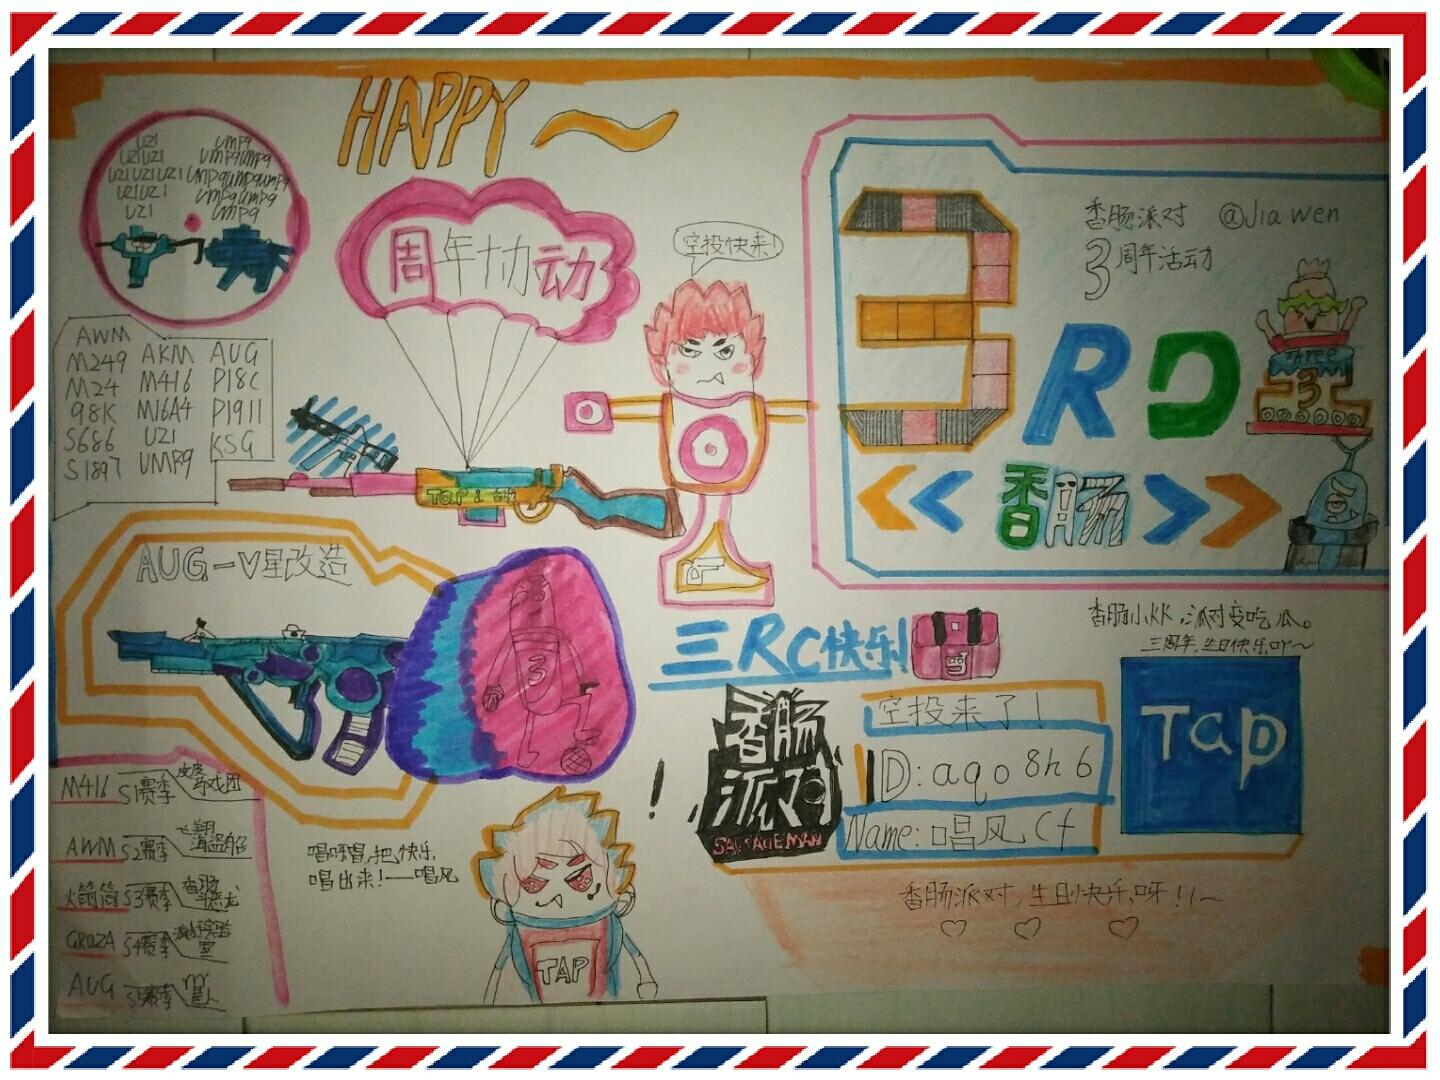 HAPPY～
UZI
UZIUZI
UZIUZIUZI
UZIUZI
UZI
UMP9
UMP9UMP9
UMP9UMP9UMP9
UMP9UMP9
UMP9
周年十力动
空投快来！
香肠派对 @Jia wen
3周年活动
3RD
THREE
3
<<香肠>>
AWM
M249
M24
98K
S686
S1897
AKM
M416
M16A4
UZI
UMP9
AUG
P18C
P1911
KSG
TAP
AUG-V星改造
3
三RC快乐!
香肠小KK,派对变吃瓜。
三周年,生日快乐吖～
香肠派对
SAUSAGE MAN
空投来了！
ID:aqo8h6
Name:唱风Cf
Tap
M416 S1赛季 皮皮马戏团
AWM S2赛季 飞翔海盗船
火箭筒 S3赛季 香肠恐龙
GROZA S4赛季 疯狂实验室
AUG S5赛季
唱呀唱,把快乐,
唱出来!——唱风
TAP
香肠派对,生日快乐呀!!~